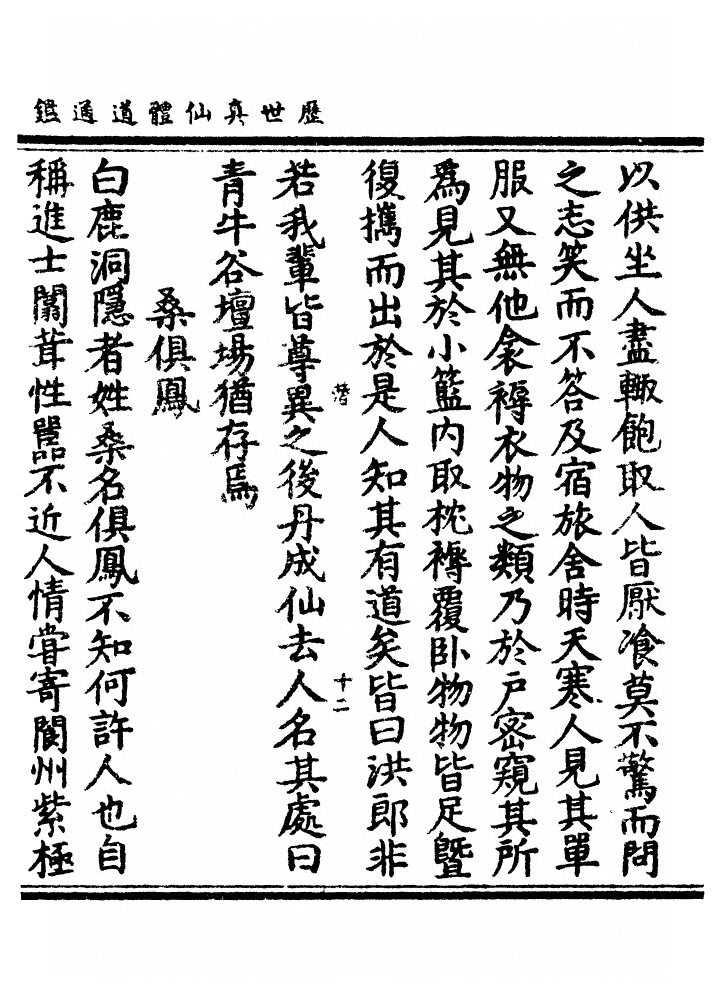 歷世真仙體道通鑑
以供坐人盡輙飽取人皆厭飡莫不驚而問
之志笑而不答及宿旅舍時天寒人見其單
服又無他衾褥衣物之類乃於户密窺其所
爲見其於小籃内取枕褥覆卧物物皆足暨
復攜而出於是人知其有道矣皆曰洪郎非
潜 十二
若我輩皆尊異之後丹成仙去人名其處曰
青牛谷壇場猶存焉
桑俱鳳
白鹿洞隱者姓桑名俱鳳不知何許人也自
稱進士闒茸性嚚不近人情甞寄閬州紫極